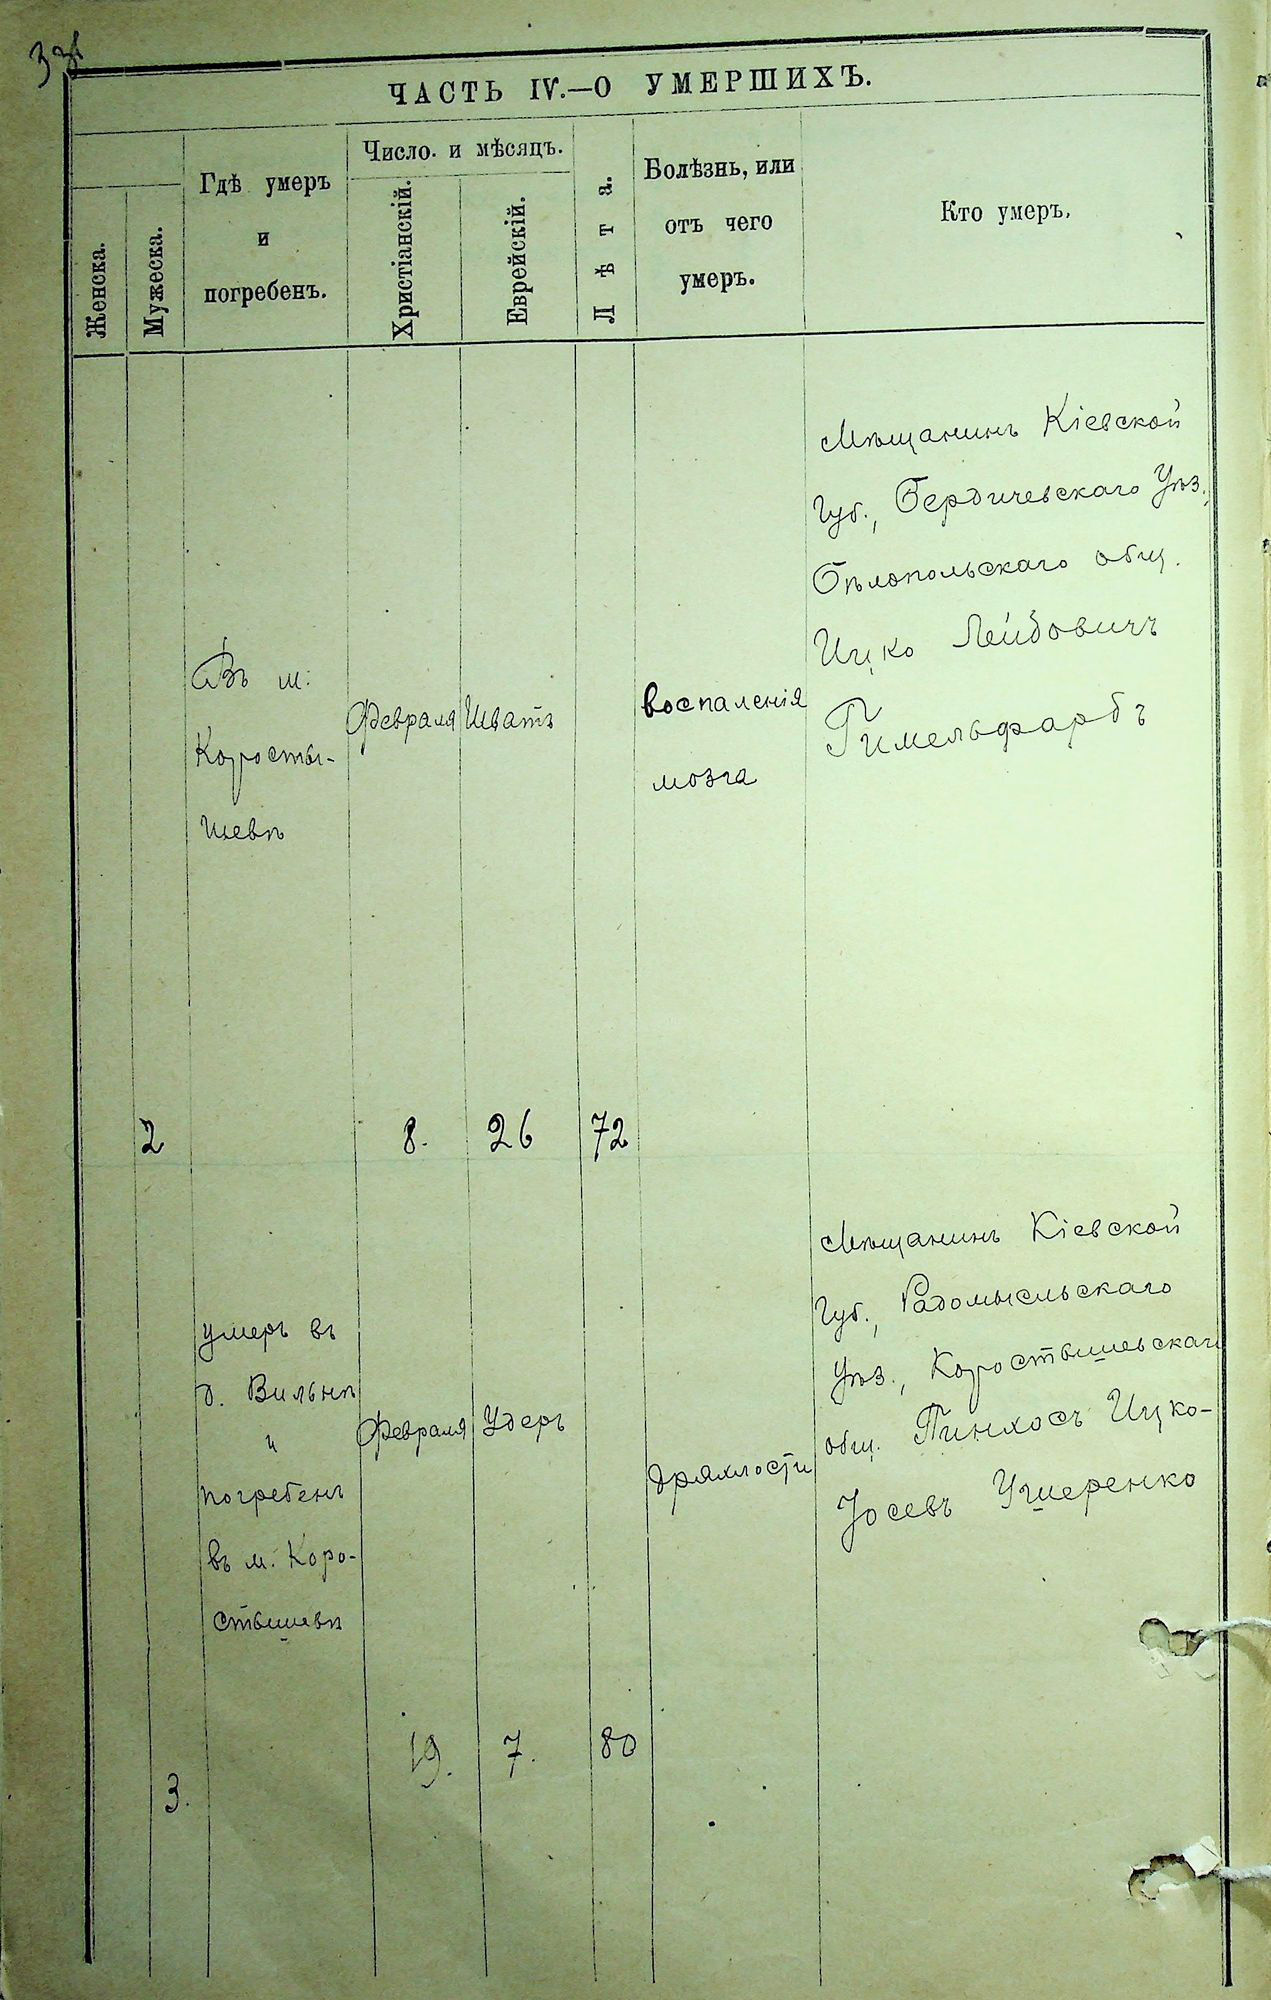 ЧАСТЬ IV.—О УМЕРШИХЪ.
Женска.
Мужеска.
Гдѣ умеръ
и
погребенъ.
Число. и мѣсяцъ.
Христіанскій.
Еврейскій.
Лѣта.
Болѣзнь, или
отъ чего
умеръ.
Кто умеръ.
2
Въ м:
Коросты-
шевѣ
Февраля
8.
Шватъ
26
72
воспаленія
мозга
Мѣщанинъ Кіевской
Губ., Бердичевскаго Уѣз.,
Бѣлопольскаго общ.
Ицко Лейбовичъ
Гимельфарбъ
3.
умеръ въ
д. Вильнѣ
и
погребенъ
въ м. Коро-
стышевѣ
Февраля
19.
Удеръ
7.
80
дряхлости
Мѣщанинъ Кіевской
Губ., Радомысльскаго
Уѣз., Коростышевскаго
общ. Пинхосъ Ицко-
Іосевъ Ушеренко